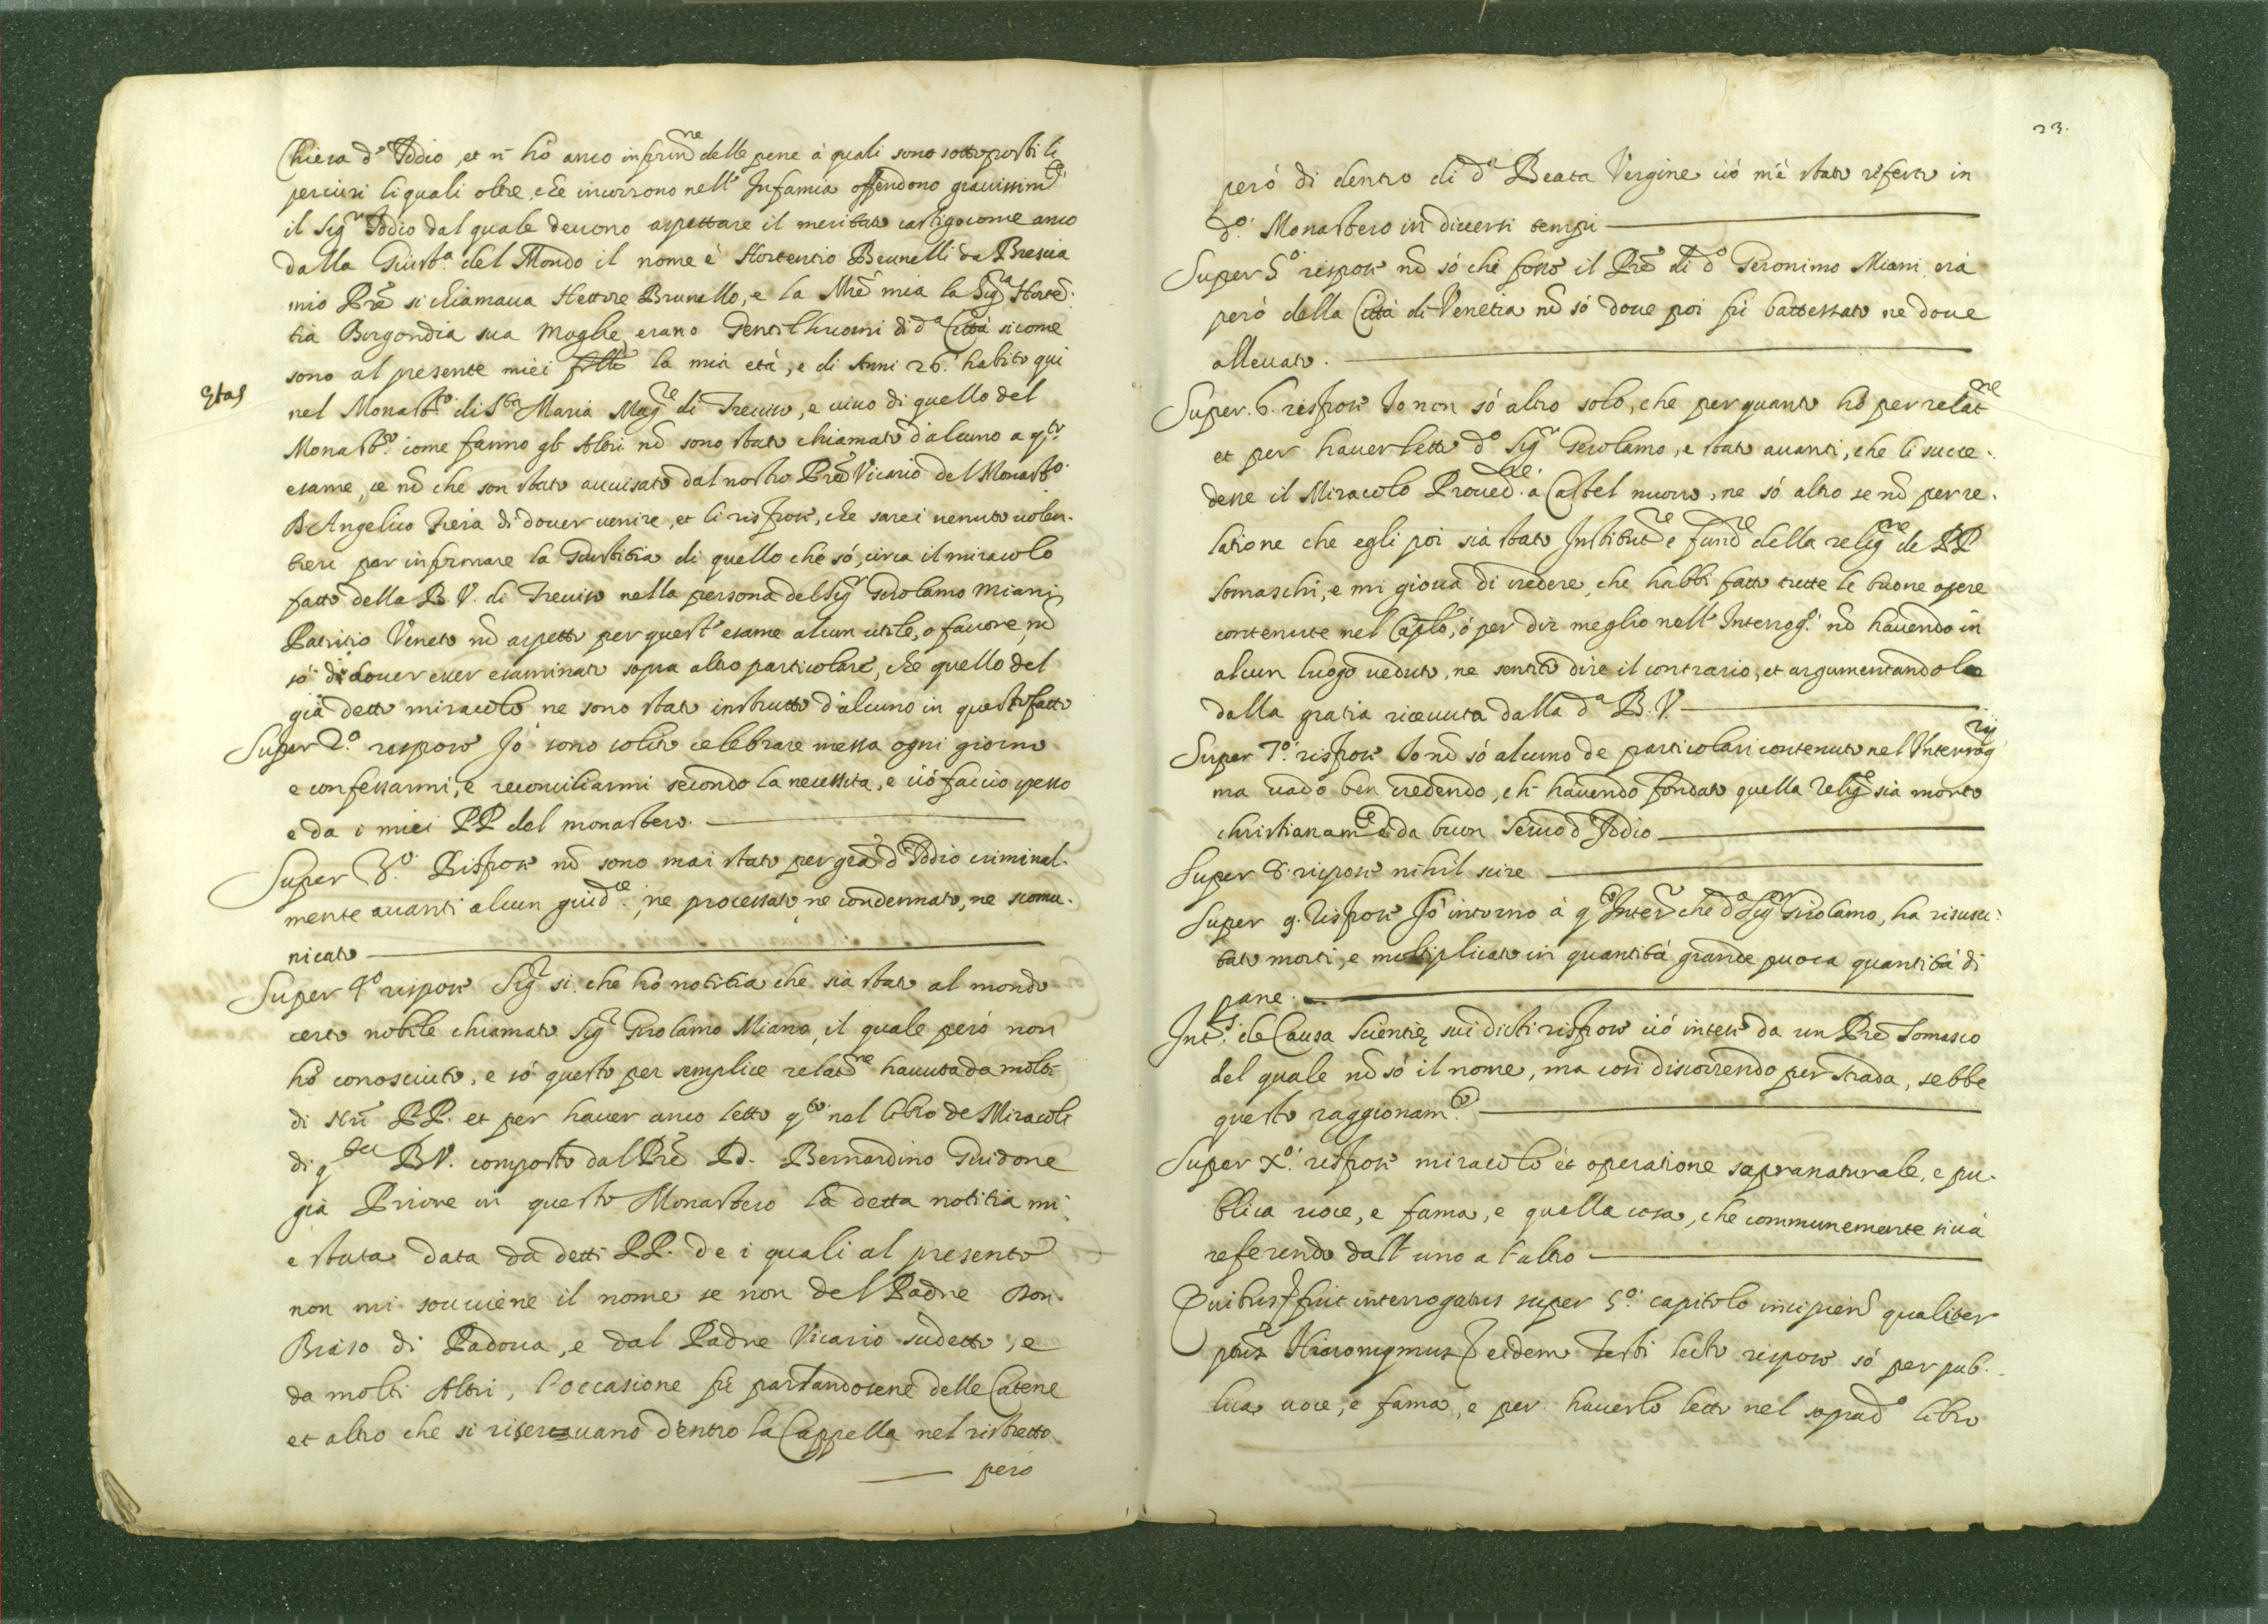 Chiesa d'Iddio, et ñ hò anco inform̃ne delle pene à quali sono sottoposti li
periuri li quali oltre, che incorrono nell'Infamia offendono grauissimte
il Sigr Iddio dal quale deuono aspettare il meritato castigo come anco
dalla Giusta. del Mondo il nome è Hortentio Brunelli da Brescia
mio Prẽ si chiamaua Hettore Brunello, e la Mrẽ mia la Sigra Horten.
tia Borgondia sua moglie, erano Gentilhuomi di da Città sicome
sono al presente miei flli la mia età, e di Anni 26. habito qui
Etas
nel Monastro. di Sta Maria Magre di Treuiso, e uiuo di quello del
Monastro. come fanno gli Altri nõ sono stato chiamato d'alcuno a qsto.
esame, se nõ che son stato auuisato dal nostro Prẽ Vicario del Monasto.
B Angelico di douer venire, et li rispose, che sarei uenuto uolen.
tieri per informare la Giustitia di quello che sò, circa il miracolo
fatto della B. V. di Treuiso nella persona del Sigr Girolamo Miani
Patritio Veneto nõ aspetto per quest'esame alcun utile, o fauore, nõ
sò di douer esser esaminato sopra altro particolare, che quello del
già detto miracolo ne sono stato instrutto d'alcuno in questo fatto
Super 2.o respose Io sono solito celebrare messa ogni giorno
e confessarmi, e reconciliarmi secondo la necessità, e ciò faccio spesso
e da i miei PP del monastero.
Super 3.o Rispose nõ sono mai stato per grã d'Iddio criminal.
mente auanti alcun giudce., ne processato, ne condennato, ne scomu.
nicato
Super 4o rispose Sigr si che hò notitia che sia stato al mondo
certo nobile chiamato Sigr Girolamo Miano, il quale però non
hò conosciuto, e sò questo per semplice relatne hauuta da molti
di nri PP. et per hauer anco letto qto nel libro de Miracoli
di qsta B V. composto dal Prẽ Pd. Bernardino Guidone
già Priore in questo Monastero la detta notitia mi
e stata data da detti PP. de i quali al presente
non mi souuiene il nome se non del Padre Don.
Briso di Padoua, e dal Padre Vicario sudetto, e
da molti Altri, l'occasione fù parlandosene delle Catene
et altro che si riseruauano dentro la Cappella nel ristretto
però
23.
però di dentro di da Beata Vergine ciò m'è stato riferto in
do. Monastero in diuersi tempi
Super 5o. rispose nõ sò chi fosse il Prẽ di do Geronimo Miani, era
però della Città di Venetia nõ sò doue poi fù battessato ne doue
alleuato.
Super. 6. rispose Io non sò altro solo, che per quanto hò per relatne
et per hauer letto do Sigr Gerolamo, e stato auanti, che li succe.
desse il Miracolo Prouedre. a Castel nuouo, ne sò altro se nõ per re.
latione che egli poi sia stato Institutre e fundre della religne de PP
Somaschi, e mi gioua di credere, che habbi fatto tutte le buone opere
contenute nel Caplo, ò per dir meglio nell'Interrogo. nõ hauendo in
alcun luogo ueduto, ne sentito dire il contrario, et argumentandole
dalla gratia riceuuta dalla da B. V.
Super 7o. rispose Io nõ sò alcuno de particolari contenuti nel Interrogrij
ma uado ben credendo, ch' hauendo fondato quella relige sia morto
christianamte e da buon seruo d'Iddio
Super 8. rispose nihil scire
Super 9. Rispose Io intorno à qto Interr che do Sigor Girolamo, ha risusci:
tato morti, e moltiplicato in quantità grande puoca quantità di
pane.
Intus. de Causa Scientię sui dicti rispose ciò intesi da un Prẽ Somasco
del quale nõ sò il nome, ma così discorrendo per strada, sebbe
questo raggionamto.
Super Xo. rispose miracolo èt operatione sopranaturale, e pu.
blica uoce, e fama, e quella cosa, che communemente si uà
referendo dall'uno a l'altro
Quibus fuit interrogatus super 5o. capitolo incipien qualiter
pñs Hieronymus eidem Testi lecto rispose sò per pub.
lica uoce, e fama, e per hauerlo letto nel soprado libro